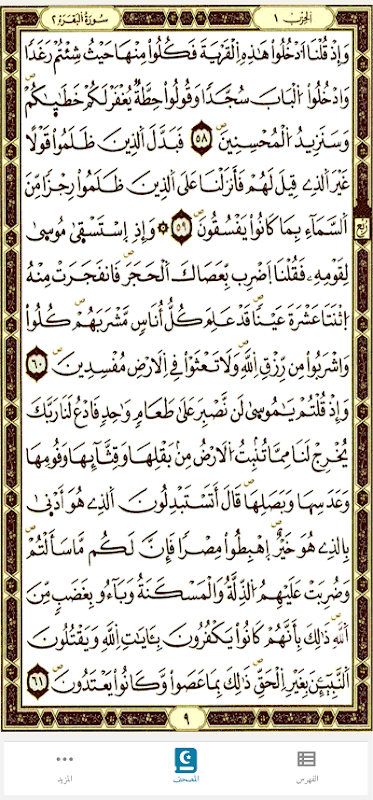 الحزب ١
سورة البقرة ٢
وَإِذْ قُلْنَا اَدْخُلُواْ هَٰذِهِ اِلْقَرْيَةَ فَكُلُواْ مِنْهَا حَيْثُ شِئْتُمْ رَغَداً
وَادْخُلُواْ اُلْبَابَ سُجَّداً وَقُولُواْ حِطَّةٌ يُغْفَرْ لَكُمْ خَطَٰيَٰكُمْ ص
وَسَنَزِيدُ اُلْمُحْسِنِينَ ص ٥٨ فَبَدَّلَ اَلذِينَ ظَلَمُواْ قَوْلاً
غَيْرَ اَلذِے قِيلَ لَهُمْ فَأَنزَلْنَا عَلَى اَلذِينَ ظَلَمُواْ رِجْزاً مِّنَ
اَلسَّمَآءِ بِمَا كَانُواْ يَفْسُقُونَ ص ٥٩ ۞ وَإِذِ اِسْتَسْقَىٰ مُوسَىٰ
ربع
لِقَوْمِهِۦ فَقُلْنَا اَضْرِب بِّعَصَاكَ اَلْحَجَرَ ص فَانفَجَرَتْ مِنْهُ
اُثْنَتَا عَشْرَةَ عَيْناً ص قَدْ عَلِمَ كُلُّ أُنَاسٍ مَّشْرَبَهُمْ ص كُلُواْ
وَاشْرَبُواْ مِن رِّزْقِ اِللَّهِ ص وَلَا تَعْثَوْاْ فِے اِلَارْضِ مُفْسِدِينَ ص ٦٠
وَإِذْ قُلْتُمْ يَٰمُوسَىٰ لَن نَّصْبِرَ عَلَىٰ طَعَامٍ وَٰحِدٍ فَادْعُ لَنَا رَبَّكَ
يُخْرِجْ لَنَا مِمَّا تُنۢبِتُ اُلَارْضُ مِنۢ بَقْلِهَا وَقِثَّآئِهَا وَفُومِهَا
وَعَدَسِهَا وَبَصَلِهَا ص قَالَ أَتَسْتَبْدِلُونَ اَلذِے هُوَ أَدْنَىٰ
بِالذِے هُوَ خَيْرٌ ص اِهْبِطُواْ مِصْراً فَإِنَّ لَكُم مَّا سَأَلْتُمْ ص
وَضُرِبَتْ عَلَيْهِمُ اُلذِّلَّةُ وَالْمَسْكَنَةُ وَبَآءُو بِغَضَبٍ مِّنَ
اَللَّهِ ص ذَٰلِكَ بِأَنَّهُمْ كَانُواْ يَكْفُرُونَ بِـَٔايَٰتِ اِللَّهِ وَيَقْتُلُونَ
اَلنَّبِيٓـِٕينَ بِغَيْرِ اِلْحَقِّ ص ذَٰلِكَ بِمَا عَصَواْ وَّكَانُواْ يَعْتَدُونَ ص ٦١
٩
الفهرس
المصحف
المزيد